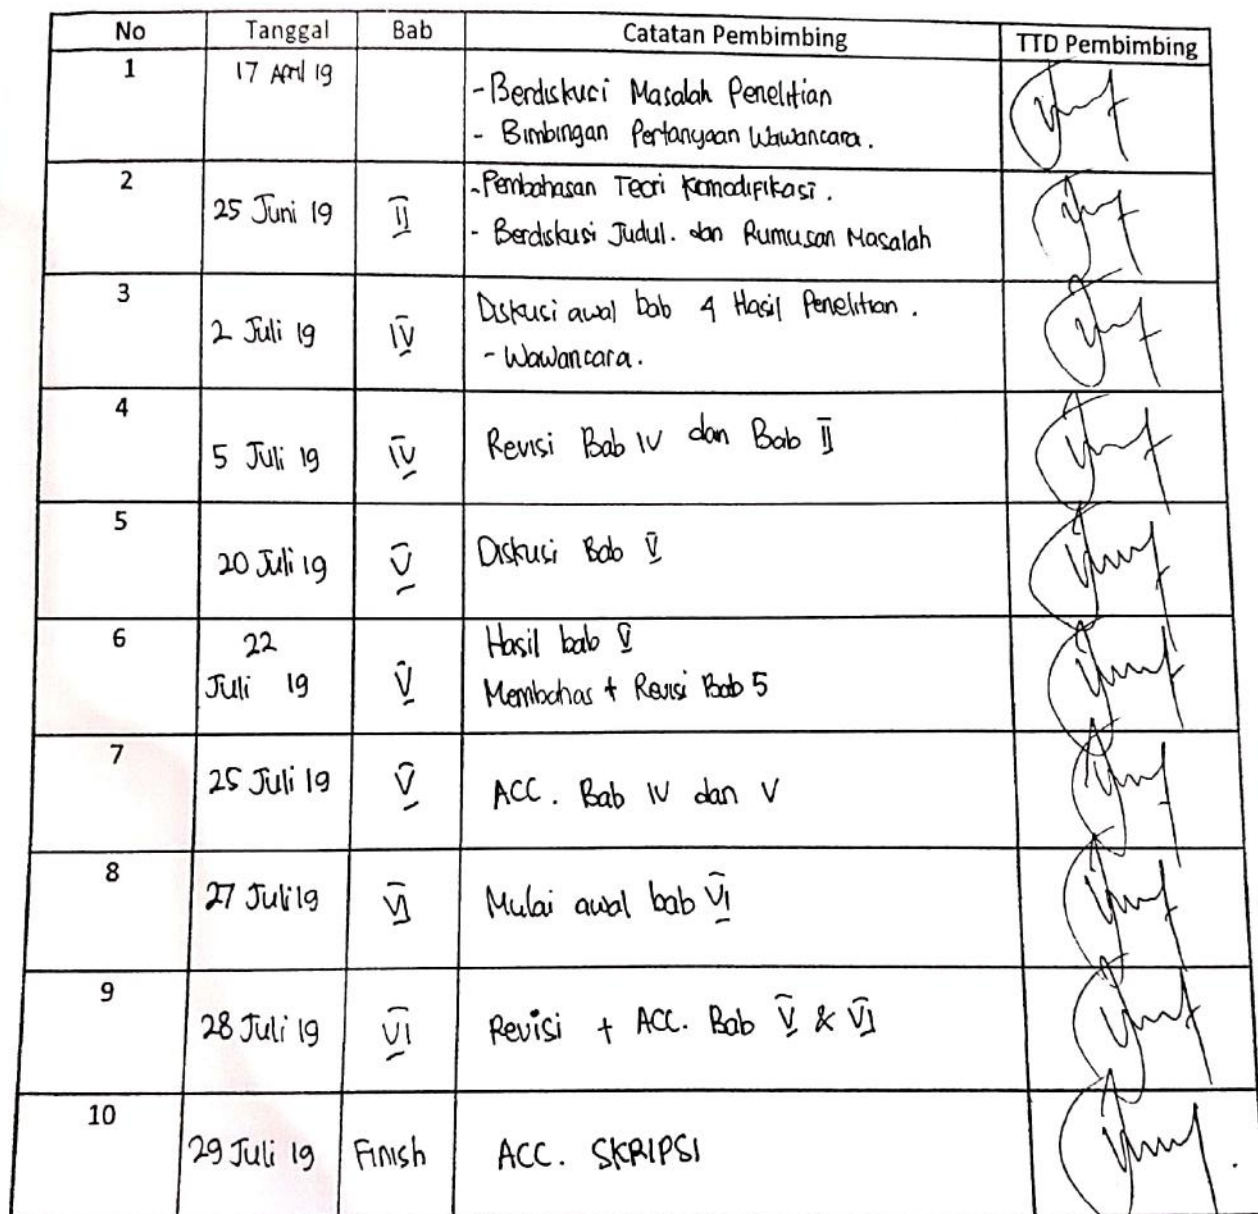 No Tanggal Bab Catatan Pembimbing TTD Pembimbing
1 17 April 19
-Berdiskusi Masalah Penelitian
- Bimbingan Pertanyaan Wawancara.
2 25 Juni 19 II
-Pembahasan Teori Komodifikasi.
- Berdiskusi Judul. dan Rumusan Masalah
3 2 Juli 19 IV
Diskusi awal bab 4 Hasil Penelitian.
- Wawancara.
4 5 Juli 19 IV Revisi Bab IV dan Bab II
5 20 Juli 19 V Diskusi Bab V
6 22
Juli 19 V
Hasil bab V
Membahas + Revisi Bab 5
7 25 Juli 19 V ACC. Bab IV dan V
8 27 Juli 19 VI Mulai awal bab VI
9 28 Juli 19 VI Revisi + ACC. Bab V & VI
10 29 Juli 19 Finish ACC. SKRIPSI